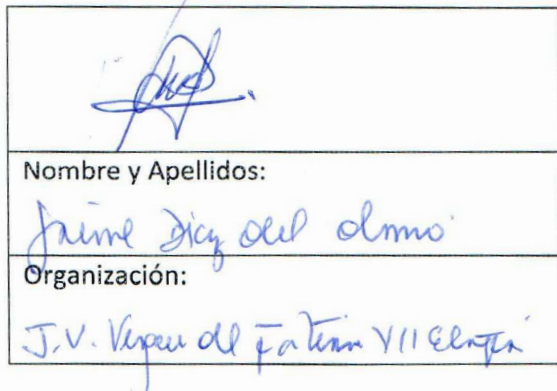 Nombre y Apellidos:
Jaime Díaz del Olmo
Organización:
J.V. Virgen de Fátima VII Etapa